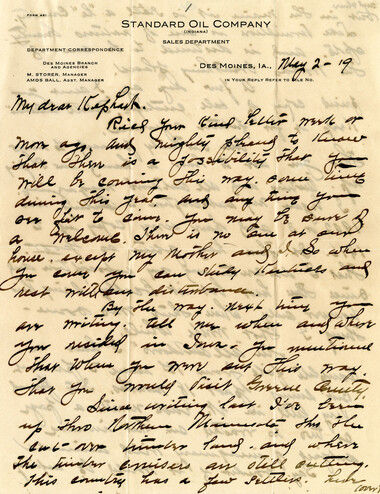 FORM 221
STANDARD OIL COMPANY
(INDIANA)
SALES DEPARTMENT
DEPARTMENT CORRESPONDENCE
DES MOINES BRANCH
AND AGENCIES
M. STORER, MANAGER
AMOS BALL, ASST. MANAGER
DES MOINES, IA., May 2 - 19
IN YOUR REPLY REFER TO FILE NO.
My dear Kephart.
Recd your kind letter week or
more ago, and mighty pleased to know
that there is a possibility that you
will be coming this way. some time
during this year and any time you
see fit to come. you may be sure of
a welcome. There is no one at our
house. except my Mother and I so when
you come you can study Nauticals and
rest without disturbance.
By the way. next time you
are writing. tell me when and where
you resided in Iowa. You mentioned
that when you were out this way.
that you would visit Greene County.
Since writing last I've been
up thro Northern Minnesota thro the
cut-over timber land. and where
the timber cruisers are still cutting.
This country has a few settlers.
(over)